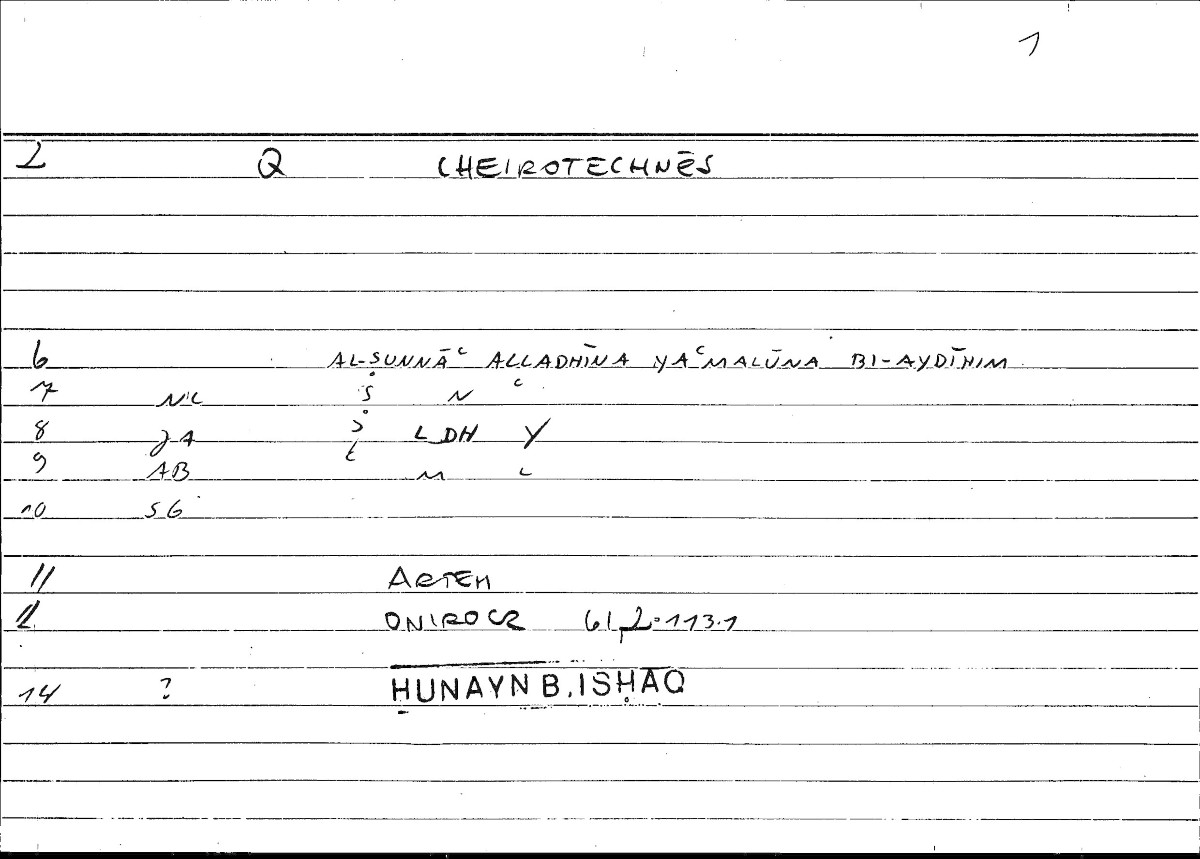 1
2 Q CHEIROTECHNĒS
6 AL-ṢUNNĀʿ ALLADHĪNA YAʿMALŪNA BI-AYDĪHIM
7 NC Ṣ N ʿ
8 JA LDH Y
9 AB M ʿ
10 SG
11 ARTEM
12 ONIROCR 61,2·113.1
14 ? ḤUNAYN B. ISḤĀQ